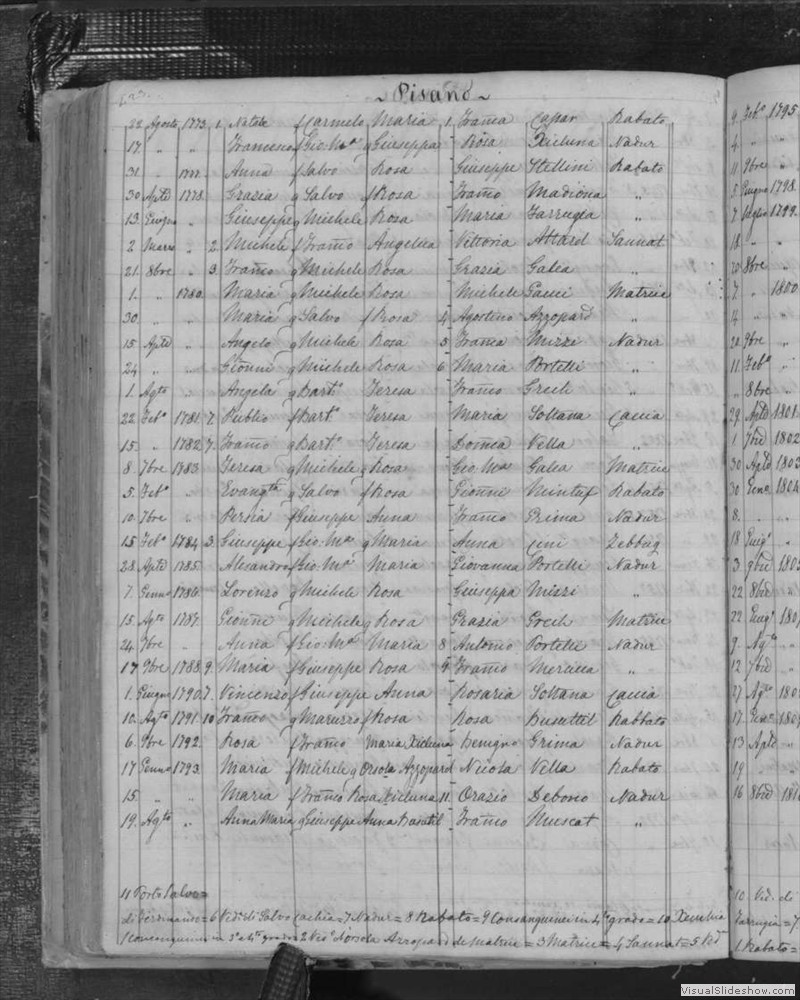 ~ Pisano ~
22 Agosto 1773 1. Natale f Carmelo Maria 1. Frañia Capar Rabato
17 " " Francesco f Gio: Ma g Giuseppa Rosa Xicluna Nadur
31 " Anna f Salvo Rosa Giuseppe Stellini Rabato
30 Aple 1778. Grazia g Salvo f Rosa Frañio Madiona "
13 Giuseppe g Michele Rosa Maria Farrugia "
2 Marzo " 2. Michele f Frañio Angelica Vittoria Attard Sannat
21 8bre " 3. Frañio g Michele Rosa Grazia Galea "
1. " 1780. Maria g Michele Rosa Michele Gauci Matrice
30 " " Maria g Salvo f Rosa 4 Agostino Azzopard "
15 Aple " Angelo g Michele Rosa 5 Frañia Mizzi Nadur
24 " " Gionñi g Michele Rosa 6 Maria Portelli "
1. Agto " Angela g Barto Teresa Frañio Grech "
22 Febo 1781. 7. Publio f Barto Teresa Maria Soltana Caccia
15. " 1782. 7. Frañio g Barto Teresa Domca Vella "
8. 7bre 1783 Teresa g Michele g Rosa Gio Ma Galea Matrice
5. Febo " Evangta g Salvo f Rosa Gionñi Mintuf Rabato
10. 7bre " f Giuseppe Anna Frañio Grima Nadur
15 Febo 1784 3. Giuseppe f Gio: Ma g Maria Anna Cini Zebbug
28. Aple 1785. Alesandro f Gio: Ma Maria Giovanna Portelli Nadur
7. Genno 1786. Lorenzo g Michele Rosa Giuseppa Mizzi "
15. Agto 1787. Gionñi g Michele g Rosa Grazia Grech Matrice
24. 7bre " Anna f Gio: Ma Maria 8 Antonio Portelli Nadur
17 9bre 1788. 9. Maria f Giuseppe Rosa 9 Frañio Mercieca "
1. Giugno 1790. 7. Vincenzo f Giuseppe Anna Rosaria Soltana Caccia
10. Agto 1791. 10 Franco g Maruzzo f Rosa Rosa Busuttil Rabbato
6. 9bre 1792. Rosa f Franco Maria Xicluna Benigno Grima Nadur
17 Genno 1793. Maria f Michele g Orsola Azzopard Nicosa Vella Rabato
15. " " Maria f Franco Rosa Xicluna 11. Orazio Debono Nadur
19. Agto " Anna Maria g Giuseppe Anna Frañio Muscat "
11 Porto Salvo =
di Ferdinando = 6 Vida di Salvo Cachia = 7 Nadur = 8 Rabato = 9 Consanguinei in 4to grado = 10 Xeuchia
1 Consanguinei in 3o a 4to grado = 2 Vida d'Orsola Azzopard di Matrice = 3 Matrice = 4 Sannat = 5 Vida
9 Febo 1795
4 " "
11 9bre "
5 Giugno 1798.
7 Luglio 1799.
18 " "
20 8bre "
7 " 1800
14 " "
20 9bre "
11 Febo "
" 8bre "
29. Aple 1801
1 7bre 1802
30 Aple 1803
30 Geno 1804
8. " "
18 Giugo "
3 9bre
22 8bre "
22 Giugo
9. Agto "
12 7bre "
27 Agto
17. Geno
13 Aple "
19 " "
16 8bre
10. Vida di
Farrugia = 7
1 Rabato =
VisualSlideshow.com